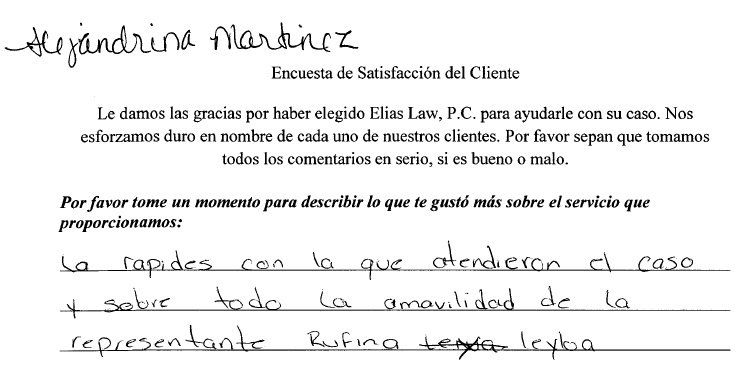 Alejandrina Martinez
Encuesta de Satisfacción del Cliente
Le damos las gracias por haber elegido Elias Law, P.C. para ayudarle con su caso. Nos
esforzamos duro en nombre de cada uno de nuestros clientes. Por favor sepan que tomamos
todos los comentarios en serio, si es bueno o malo.
Por favor tome un momento para describir lo que te gustó más sobre el servicio que
proporcionamos:
La rapides con la que atendieron el caso
y sobre todo la amavilidad de la
representante Rufina leyba